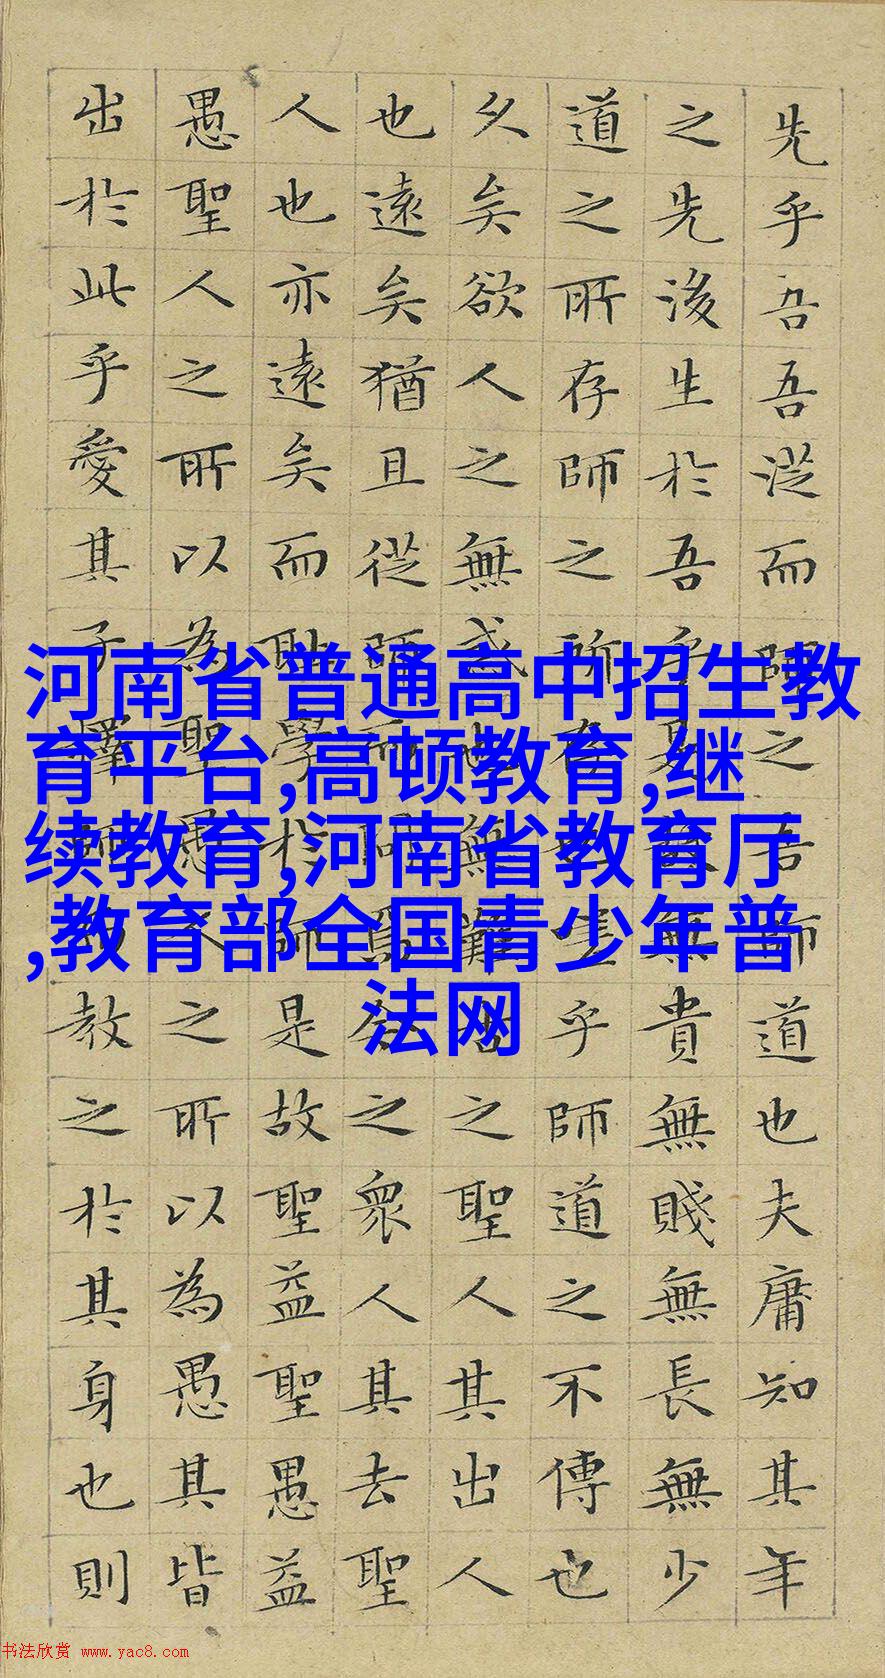 先乎吾吾從而師之吾師道也夫庸知其年
之先後生於吾乎是故無貴無賤無長無少
道之所存師之所存也嗟乎師道之不傳也
久矣欲人之無惑也無難古之聖人其出人
也遠矣猶且從師而問焉今之眾人其去聖
人也亦遠矣而恥學於師是故聖益聖愚益
愚聖人之所以為聖愚人之所以為愚其皆
出於此乎愛其子擇師而教之於其身也則
河南省普通高中招生教
育平台,高顿教育,继
续教育,河南省教育厅
,教育部全国青少年普
法网
书法欣赏 www.yac8.com